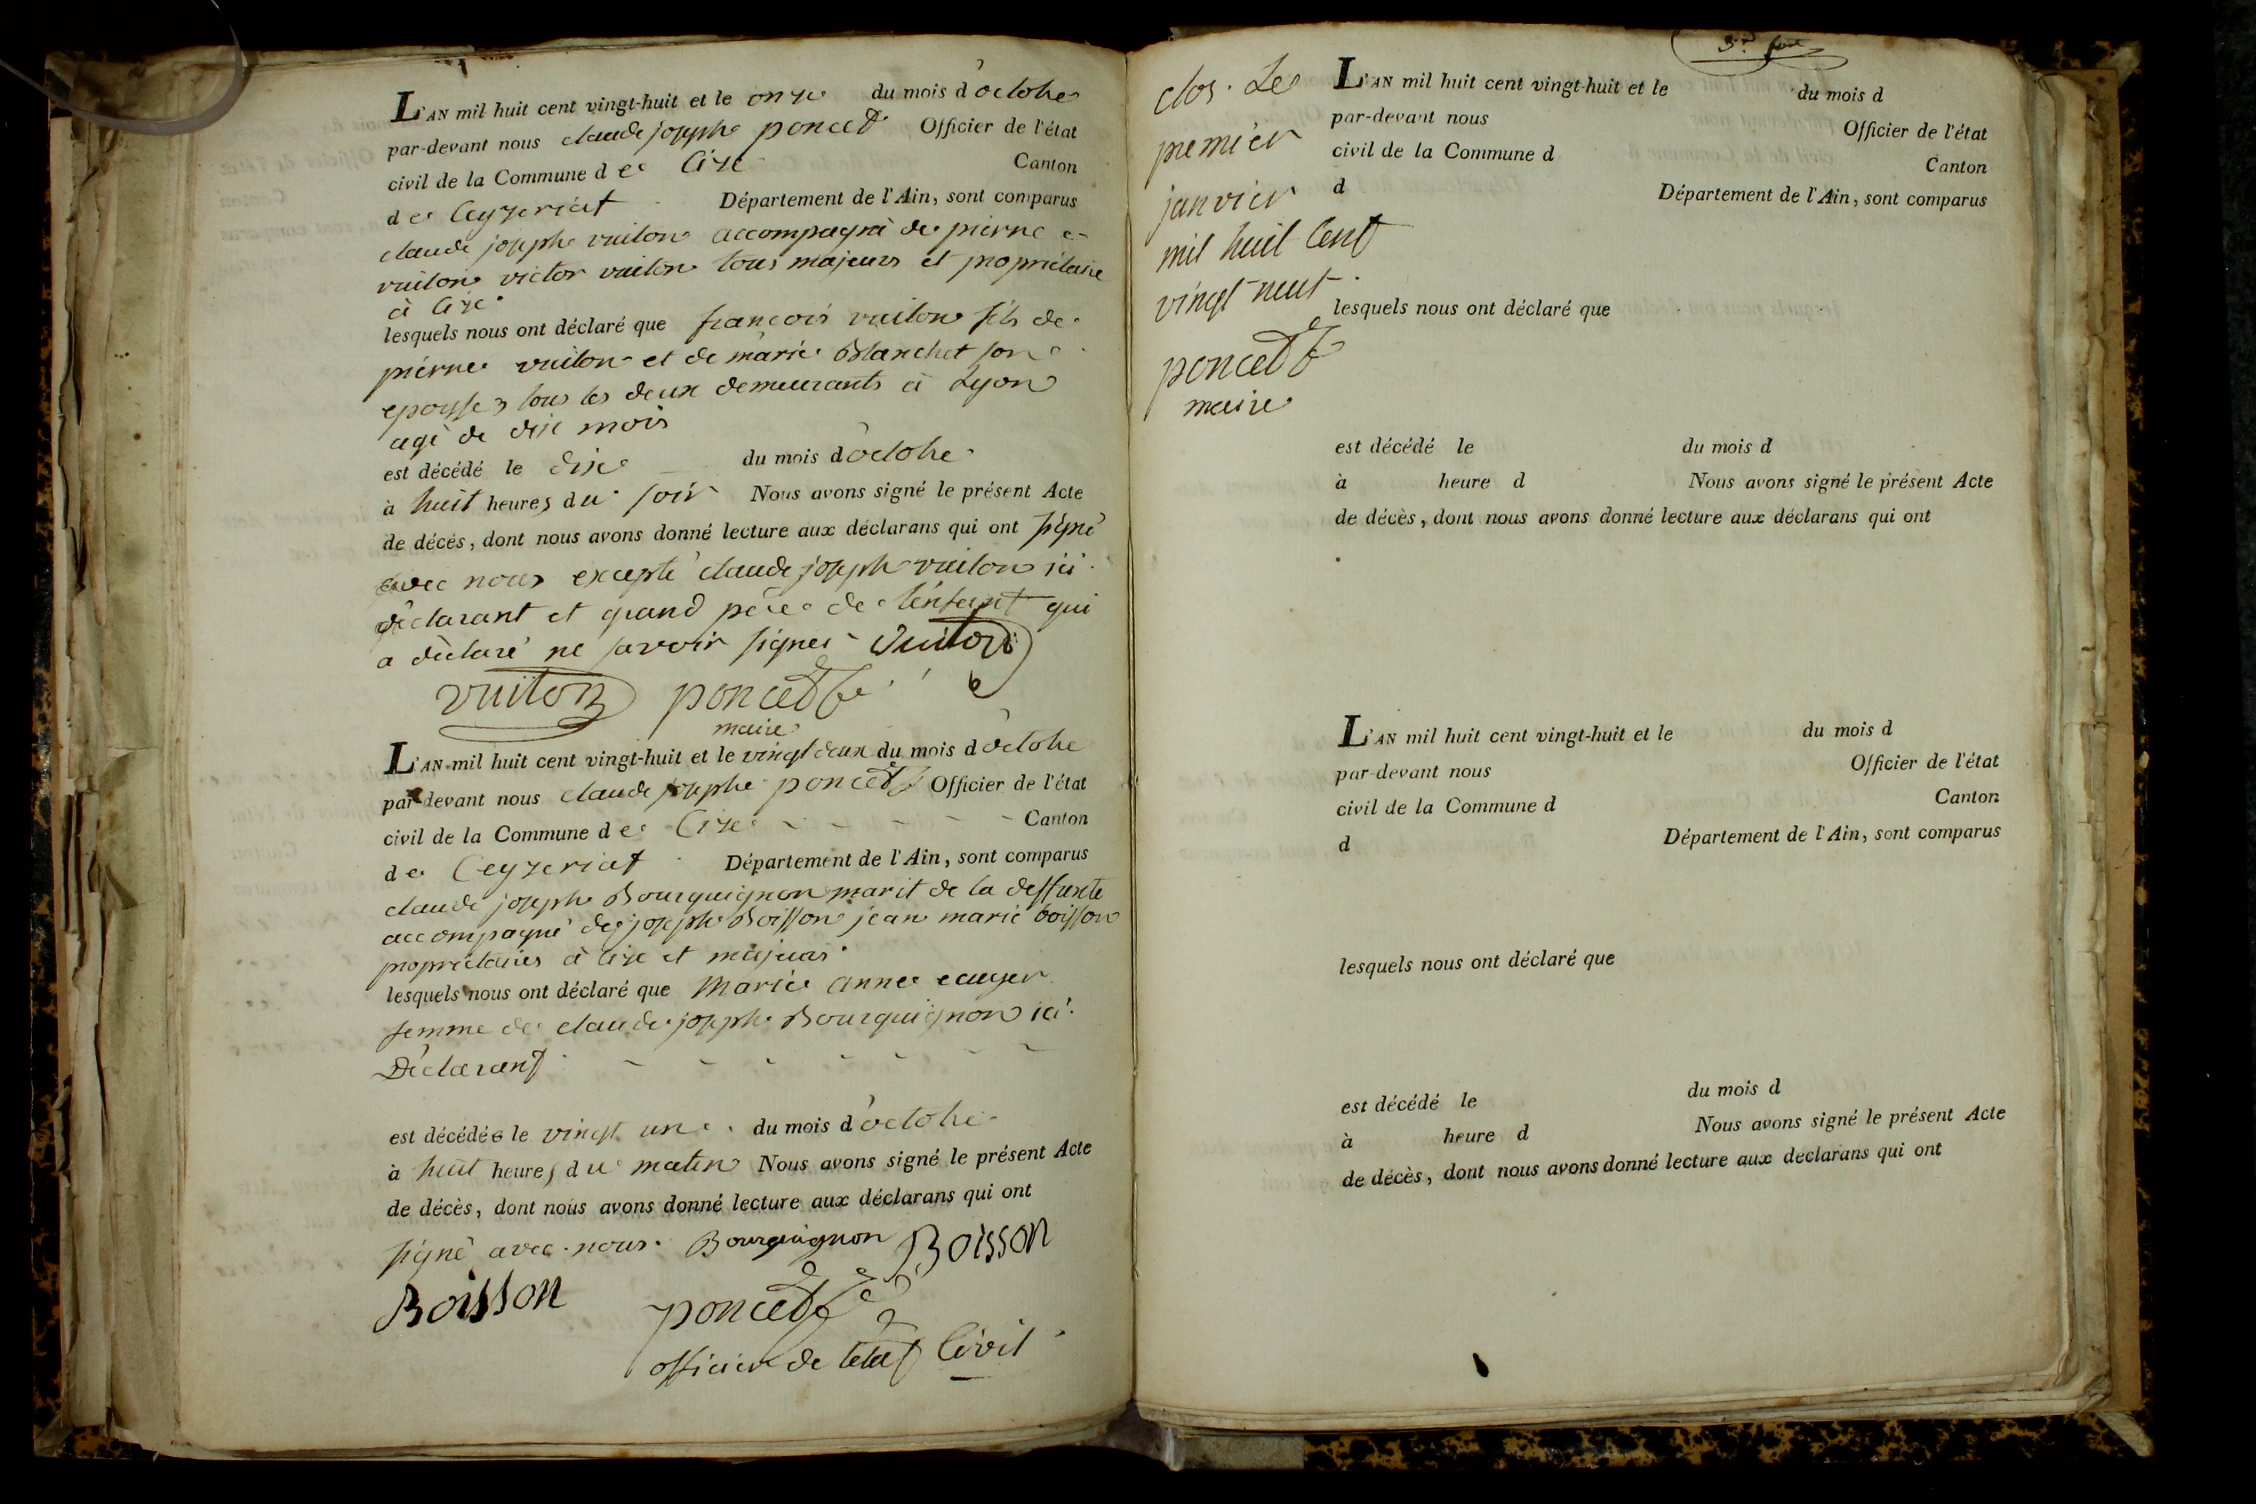 L'AN mil huit cent vingt-huit et le onze du mois d'octobre
par-devant nous claude joseph poncet Officier de l'état
civil de la Commune de Cize Canton
de Ceyzeriat Département de l'Ain, sont comparus
claude joseph vuiton accompagné de pierre
vuiton victor vuiton tous majeurs et propriétaire
à Cize
lesquels nous ont déclaré que françois vuiton fils de
pierre vuiton et de marie Blanchet son
epouse tous les deux demeurants à Lyon
agé de dix mois
est décédé le dix du mois d'octobre
à huit heures du soir Nous avons signé le présent Acte
de décès, dont nous avons donné lecture aux déclarans qui ont signé
avec nous excepté claude joseph vuiton ici
déclarant et grand père de l'enfant qui
a déclaré ne savoir signer Vuiton
vuiton poncet
maire
L'AN mil huit cent vingt-huit et le vingt deux du mois d'octobre
par devant nous claude joseph poncet Officier de l'état
civil de la Commune de Cize Canton
de Ceyzeriat Département de l'Ain, sont comparus
claude joseph Bourguignon marit de la deffunte
accompagné de joseph Boisson jean marie boisson
propriétaires à Cize et majeurs
lesquels nous ont déclaré que Marie anne
femme de claude joseph Bourguignon ici
Déclarant
est décédée le vingt un du mois d'octobre
à huit heures du matin Nous avons signé le présent Acte
de décès, dont nous avons donné lecture aux déclarans qui ont
signé avec nous Bourguignon Boisson
Boisson poncet
officier de l'état Civil
clos Le
premier
janvier
mil huit Cent
vingt neuf
poncet
maire
L'AN mil huit cent vingt-huit et le du mois d
par-devant nous Officier de l'état
civil de la Commune d Canton
d Département de l'Ain, sont comparus
lesquels nous ont déclaré que
est décédé le du mois d
à heure d Nous avons signé le présent Acte
de décès, dont nous avons donné lecture aux déclarans qui ont
L'AN mil huit cent vingt-huit et le du mois d
par-devant nous Officier de l'état
civil de la Commune d Canton
d Département de l'Ain, sont comparus
lesquels nous ont déclaré que
est décédé le du mois d
à heure d Nous avons signé le présent Acte
de décès, dont nous avons donné lecture aux declarans qui ont